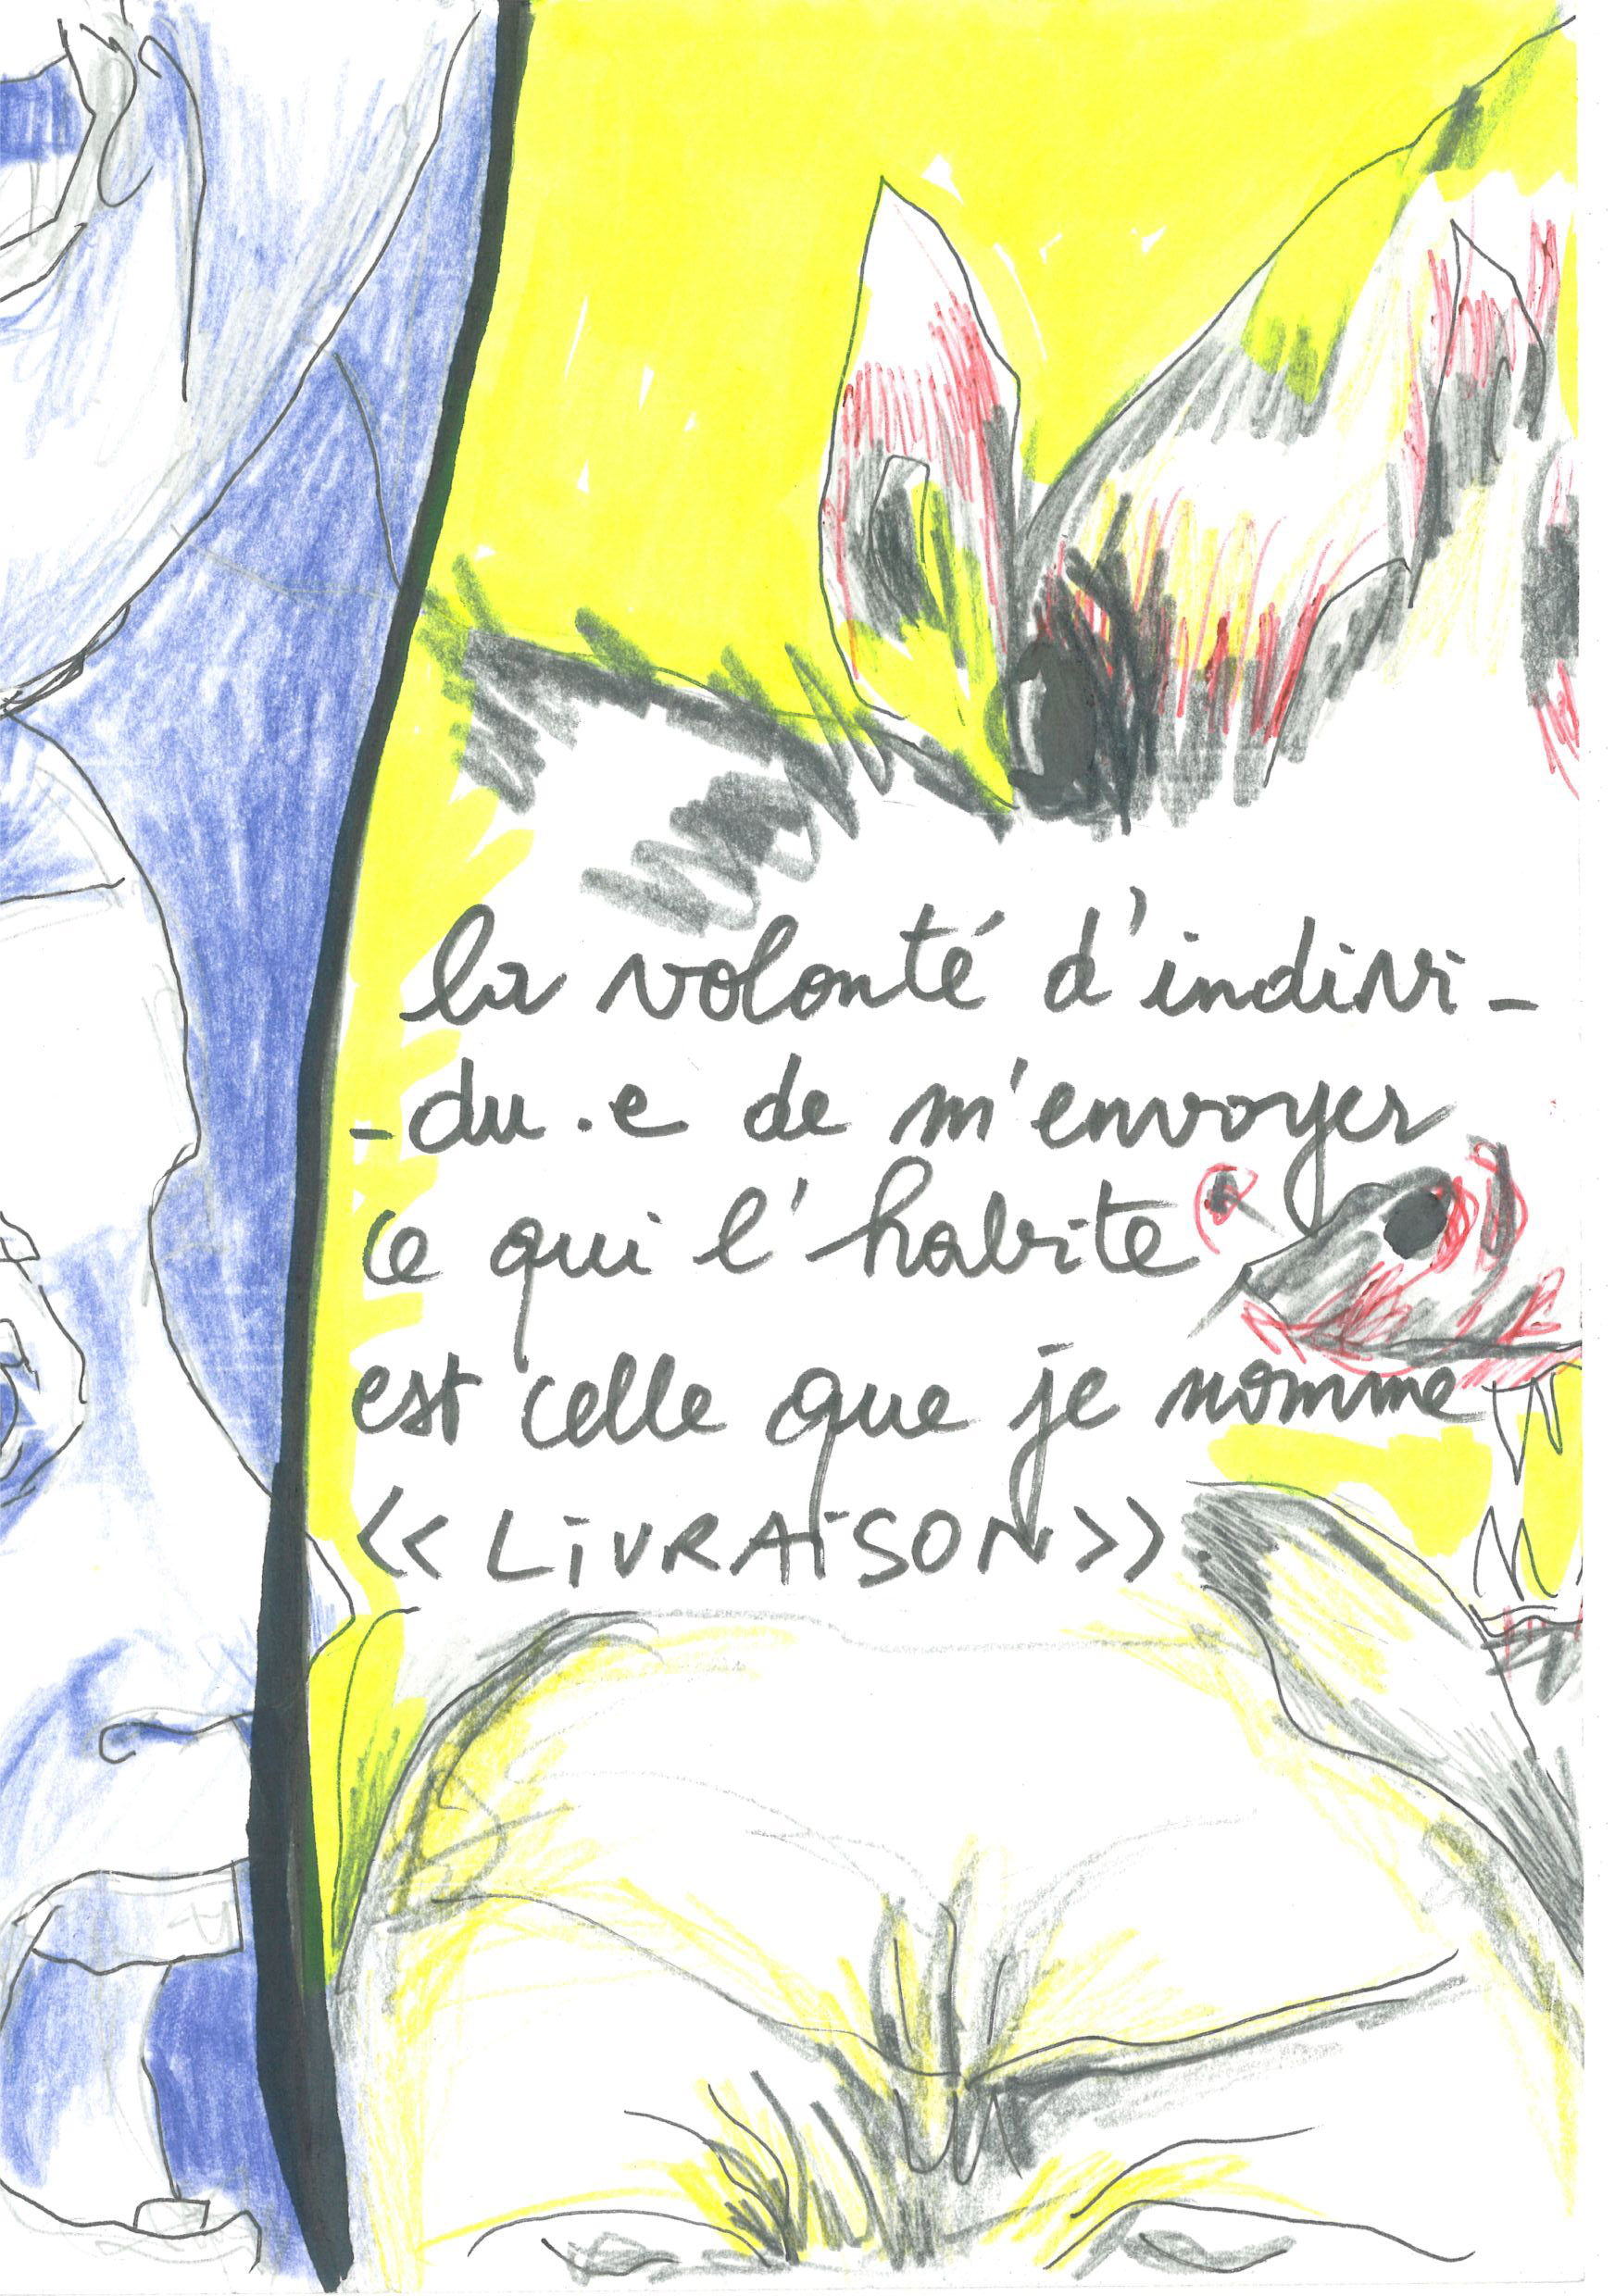 la volonté d'indivi-
-du.e de m'envoyer
ce qui l'habite
est celle que je nomme
<< LiVRAiSON >>